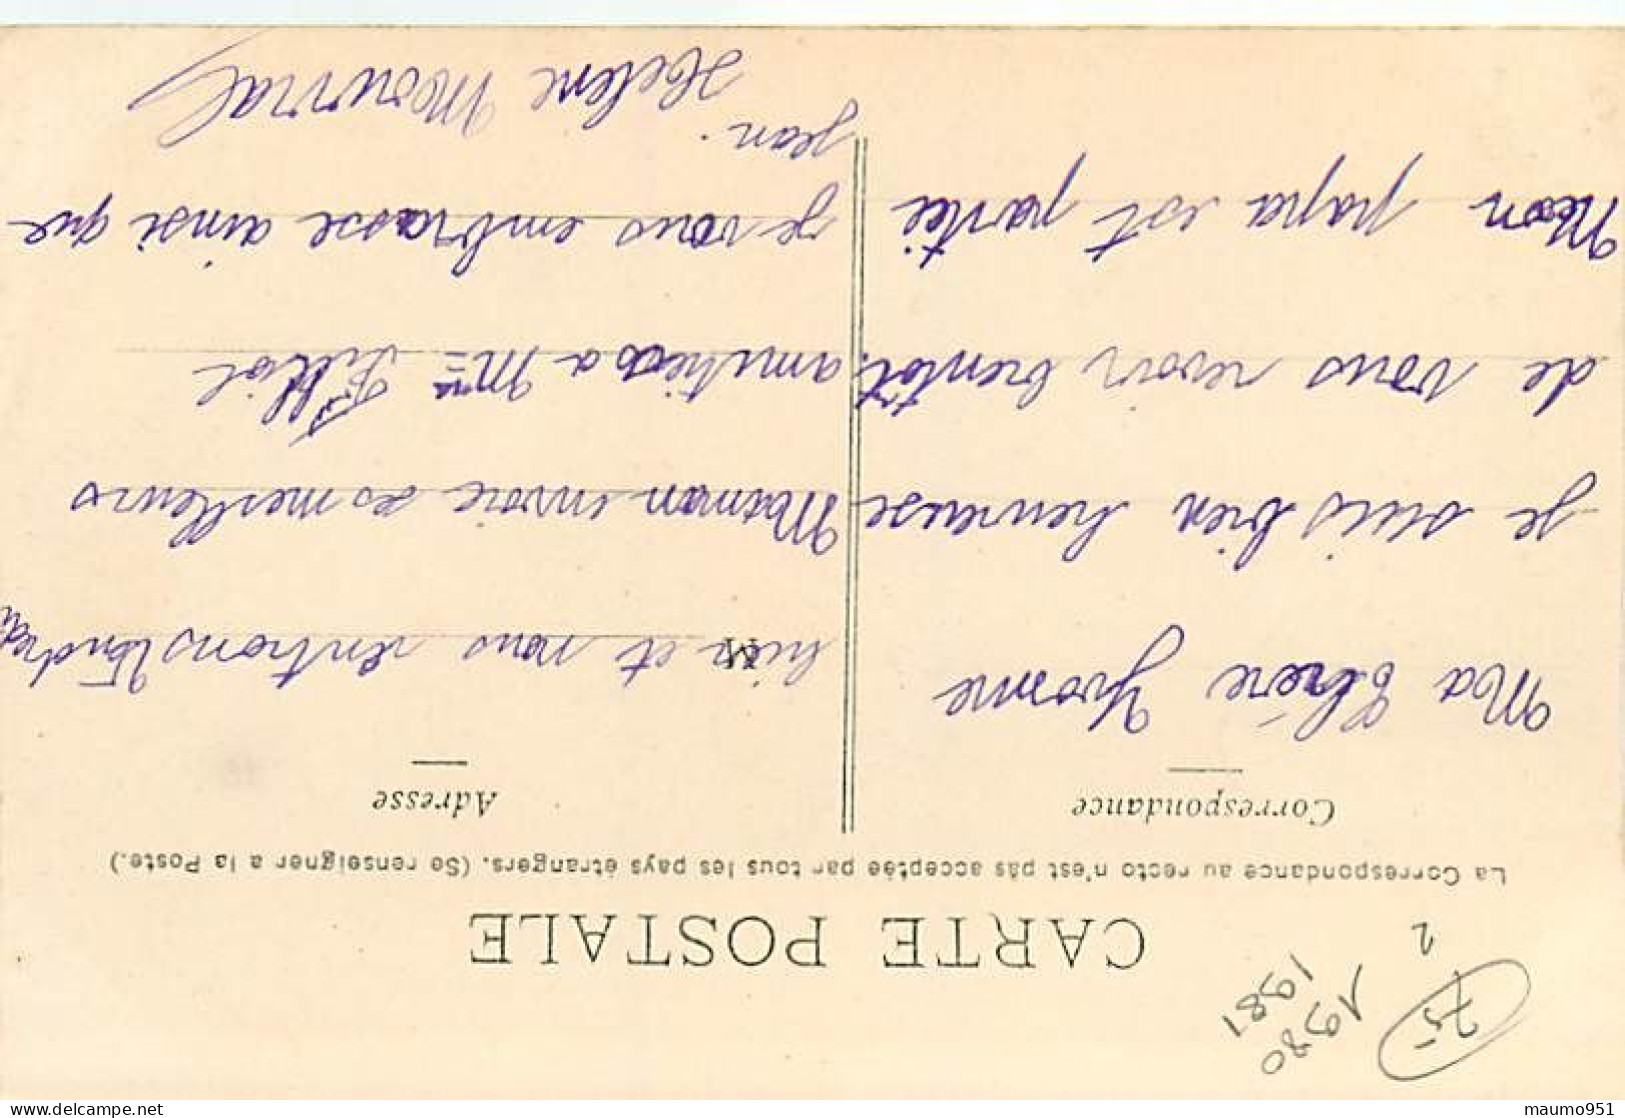 CARTE POSTALE
La Correspondance au recto n'est pas acceptée par tous les pays étrangers. (Se renseigner a la Poste.)
Correspondance
Ma Chère Yvonne
je suis bien heureuse
de vous revoir bientot.
Mon papa est partie
Adresse
M
hier et nous rentrons Vendredi
Maman envoie ses meilleurs
amitiées a Mme Filliol
je vous embrasse ainsi que
Jean.
Helene Mourral
75
2
1980
1981
maumo951